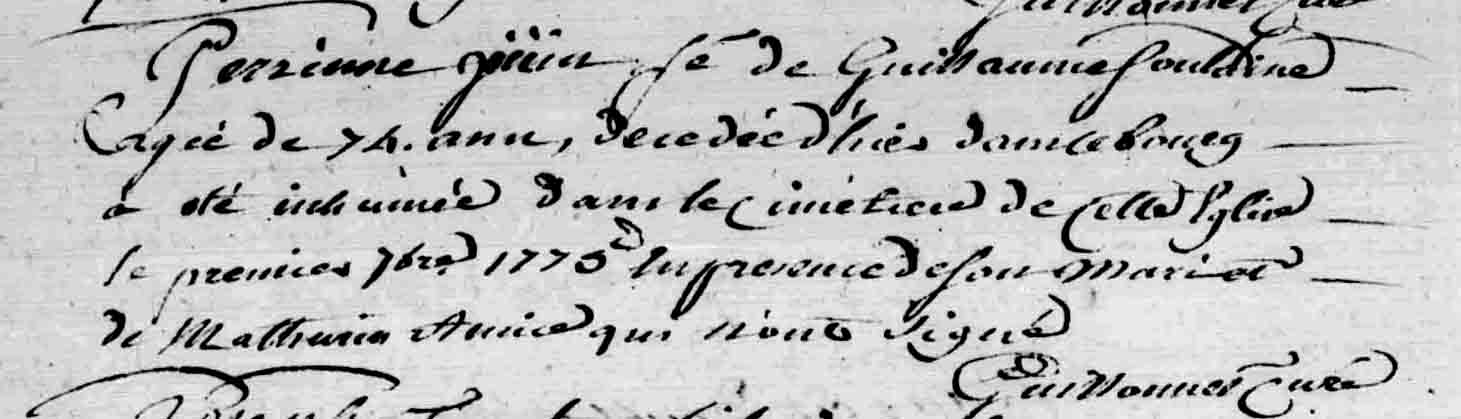 Guillonnet Curé
Perrinne jüin fe de Guillaume Soulaine
agée de 74. ans, decedée d'hier dans le bourg
a eté inhumée dans le Cimetiere de cette Eglise
le premier 7bre 1775 En presence de son Mari et
de Mathurin Amice qui n'ont Signé
Guillonnet Curé